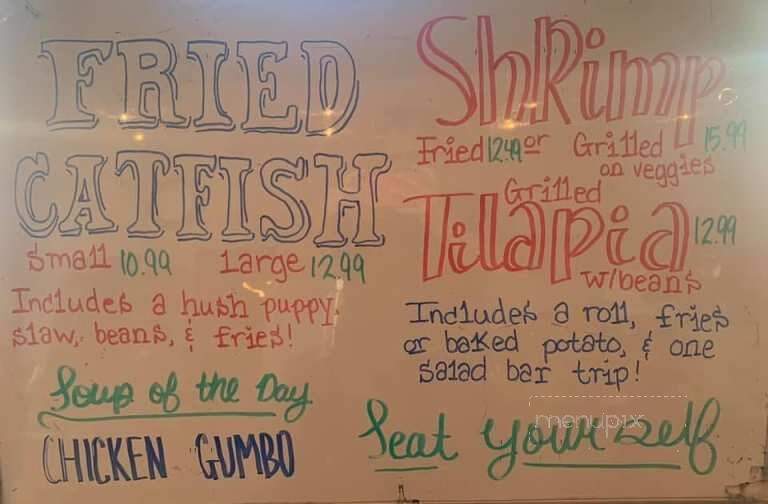 FRIED
CATFISH
small 10.99 Large 12.99
Includes a hush puppy,
slaw, beans, & fries!
Soup of the Day
CHICKEN GUMBO
Shrimp
Fried 12.49 or Grilled 15.99
on veggies
Grilled
Tilapia 12.99
w/beans
Includes a roll, fries
or baked potato, & one
salad bar trip!
Seat yourself
menupix